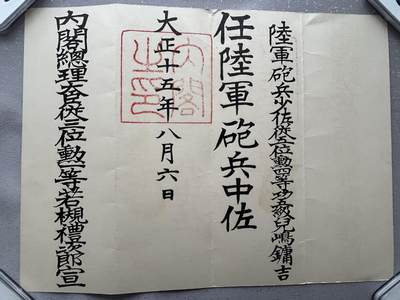 陸軍砲兵少佐從六位勲四等功五級兒嶋鏞吉
任陸軍砲兵中佐
大正十五年八月六日
内閣之印
内閣總理大臣從三位勲一等若槻禮次郎宣